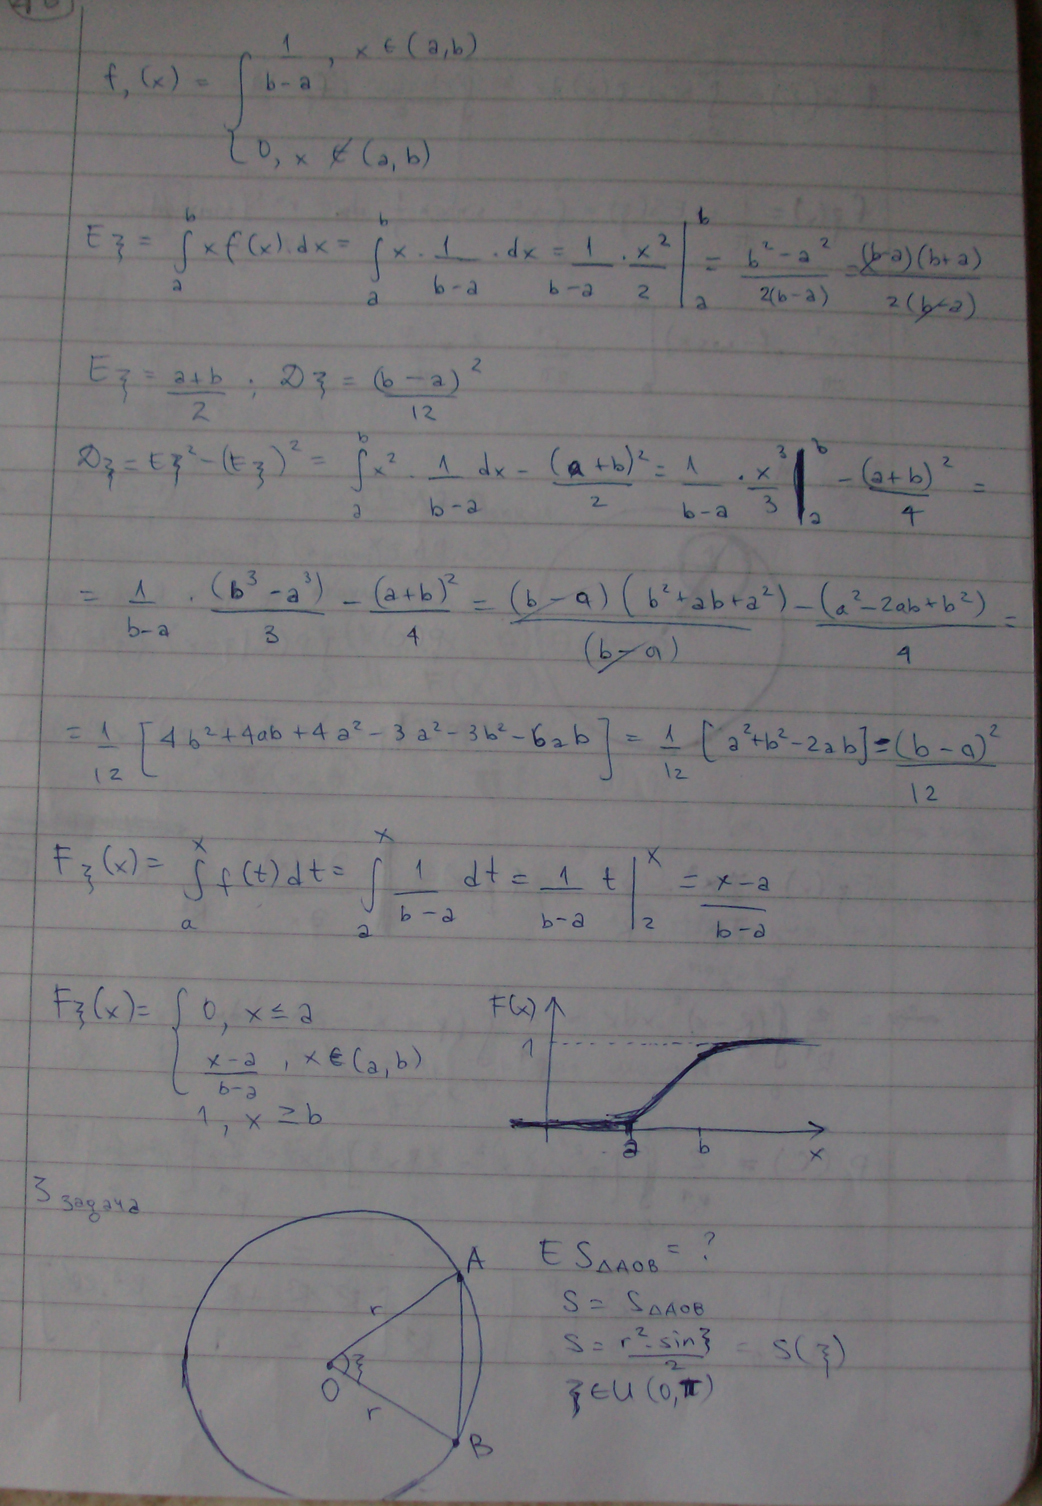 f,(x) = { 1/(b-a), x ∈ (a,b)
0, x ∉ (a, b)
Eξ = ∫_a^b x f(x).dx = ∫_a^b x · 1/(b-a) · dx = 1/(b-a) · x²/2 |_a^b = (b²-a²)/(2(b-a)) = (b-a)(b+a)/(2(b-a))
Eξ = (a+b)/2 ; Dξ = (b-a)²/12
Dξ = Eξ² - (Eξ)² = ∫_a^b x² · 1/(b-a) dx - (a+b)²/2 = 1/(b-a) · x³/3 |_a^b - (a+b)²/4 =
= 1/(b-a) · (b³-a³)/3 - (a+b)²/4 = (b-a)(b²+ab+a²)/(b-a) - (a²-2ab+b²)/4 =
= 1/12 [4b²+4ab+4a²-3a²-3b²-6ab] = 1/12 [a²+b²-2ab] = (b-a)²/12
Fξ(x) = ∫_a^x f(t)dt = ∫_a^x 1/(b-a) dt = 1/(b-a) t |_2^x = (x-a)/(b-a)
Fξ(x) = { 0, x ≤ a
(x-a)/(b-a), x ∈ (a,b)
1, x ≥ b
F(x)
1
a b x
3 задача
A
r
ξ
O
r
B
E S△AOB = ?
S = S△AOB
S = r².sinξ/2 = S(ξ)
ξ ∈ U (0,π)